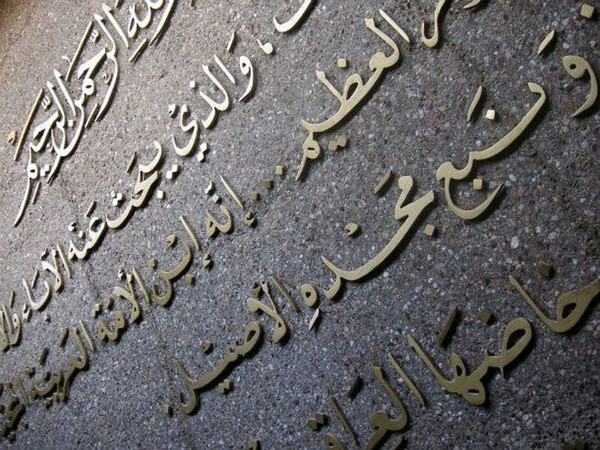 الله الرَّحمن الرَّحيم
وَالذيْ يبحث عنهُ الآباء
العظيم ... إنّه ابْن الأمّة العربيّة
وَنبع مجْدهِ الأصيل.
حاضنهَا